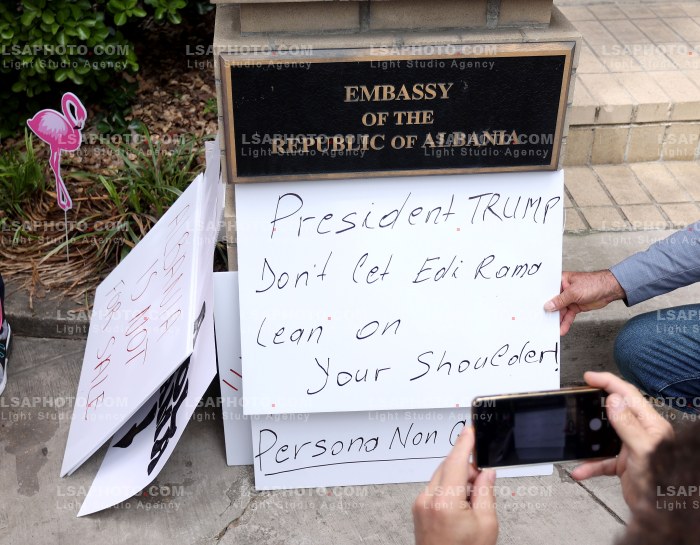 EMBASSY
OF THE
REPUBLIC OF ALBANIA
President TRUMP
Don't let Edi Rama
lean on
your Shoulder!
Persona Non
IS NOT
FOR SALE
LSAPHOTO.COM
Light Studio Agency